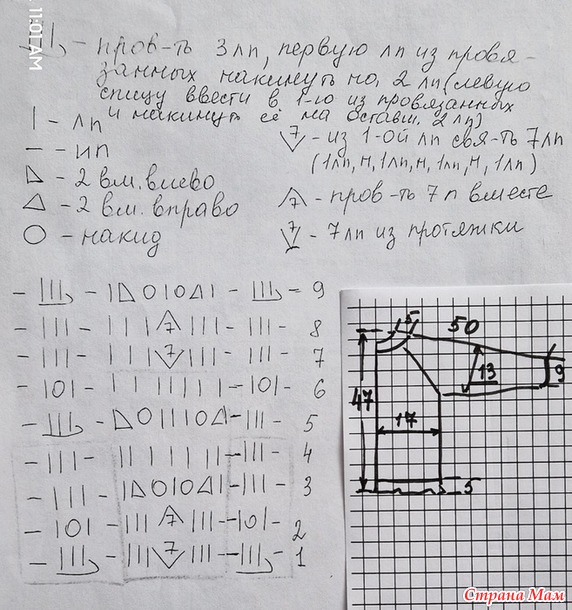 11:01 AM
- пров-ть 3 лп, первую лп из провя-
занных накинуть на 2 лп (левую
спицу ввести в 1-ю из провязанных
и накинуть её на оставш. 2 лп)
| - лп
— - ип
- 2 вм. влево
- 2 вм. вправо
○ - накид
7 - из 1-ой лп свя-ть 7 лп
(1лп, н, 1лп, н, 1лп, н, 1лп)
7 - пров-ть 7 п вместе
7 - 7 лп из протяжки
- ||| - |◺O|O◿| - ||| - 9
- ||| - |||7||| - ||| - 8
- ||| - |||7||| - ||| - 7
- |O| - ||||||| - |O| - 6
- ||| - ◺O|||O◿ - ||| - 5
- ||| - ||||||| - ||| - 4
- ||| - |◺O|O◿| - ||| - 3
- |O| - |||7||| - |O| - 2
- ||| - |||7||| - ||| - 1
50
13
9
47
17
5
Страна Мам